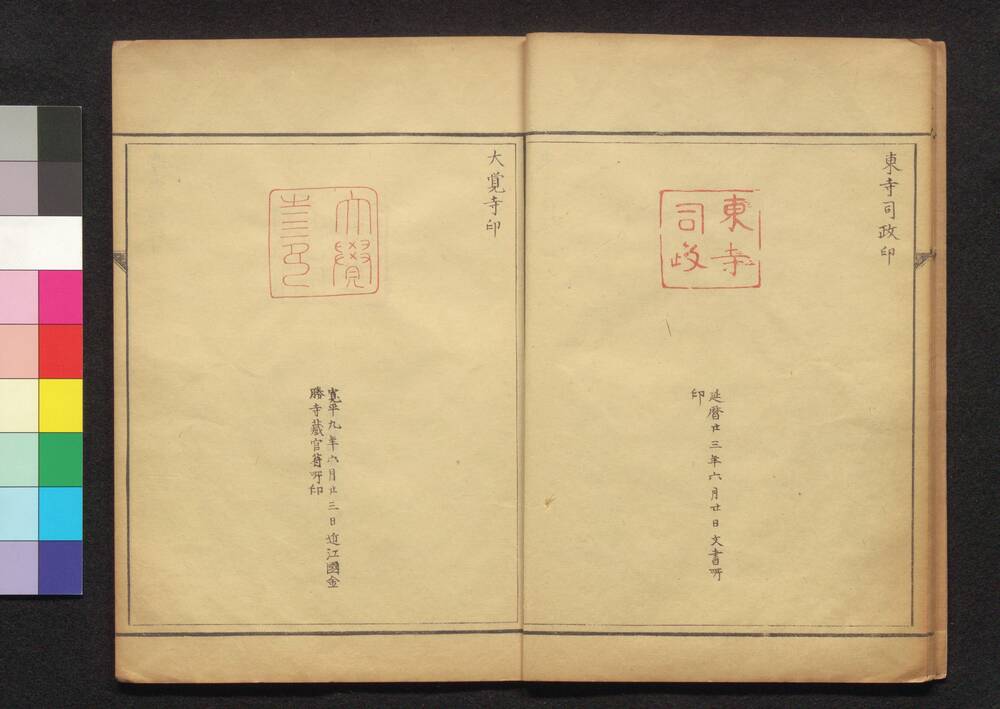 東寺司政印
東寺
司政
延暦廿三年六月廿日文書所
印
大覚寺印
大覺
寺印
寛平九年六月廿三日近江國金
勝寺蔵官符所印